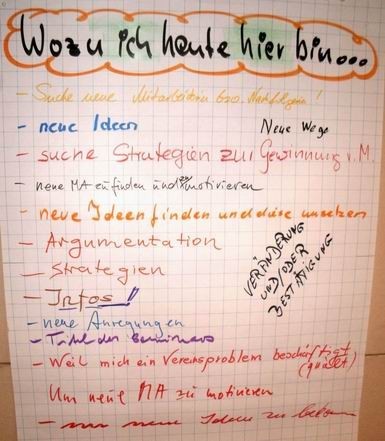 Wozu ich heute hier bin...
- Suche neue Mitarbeiterin bzw. Nachfolgerin!
- neue Ideen
Neue Wege
- suche Strategien zur Gewinnung v. M.
- neue MA zu finden und zu motivieren
- neue Ideen finden und diese umsetzen
- Argumentation
- Strategien
- Infos!
VERÄNDERUNG
UND/ODER
BESTÄTIGUNG
- neue Anregungen
- Titel des Seminars
- Weil mich ein Vereinsproblem beschäftigt
(quält)
Um neue MA zu motivieren
- um neue Ideen zu bekommen